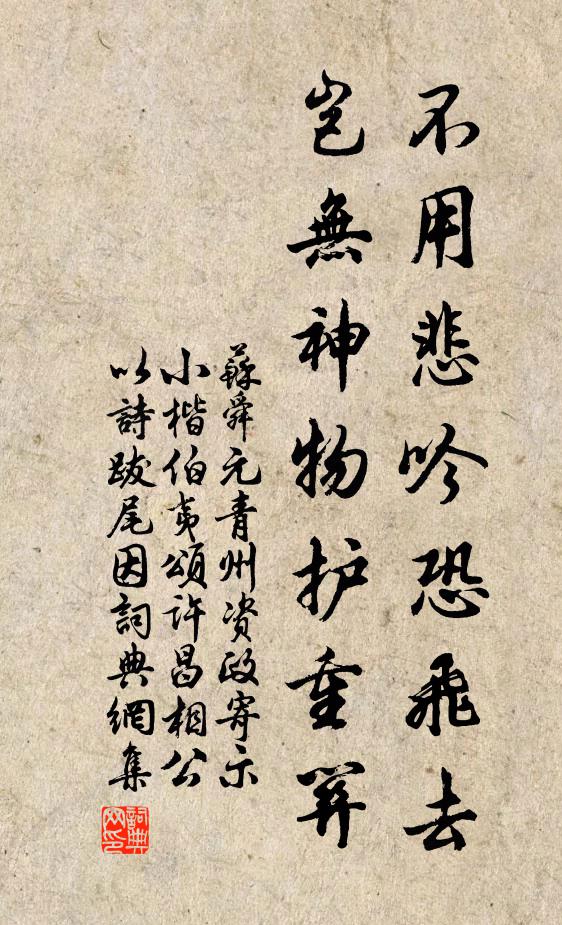 不用悲吟恐飛去
豈無神物护重關
蘇舜元青州资政寄示
小楷伯夷頌许昌相公
以詩跋尾因詞典網集
詞典
网印